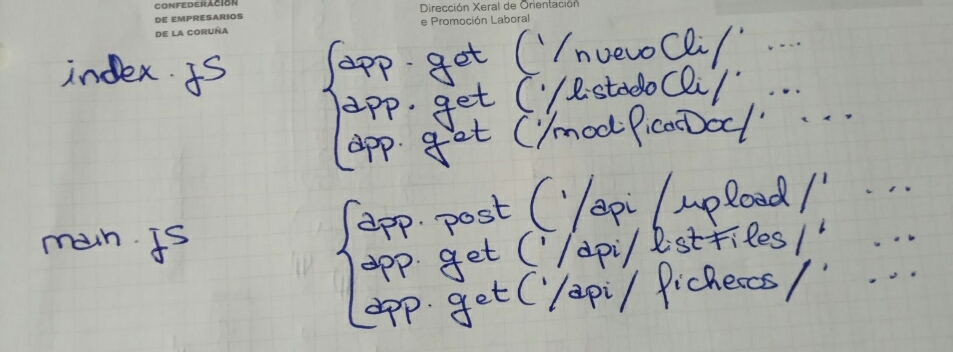 CONFEDERACIÓN
DE EMPRESARIOS
DE LA CORUÑA
Dirección Xeral de Orientación
e Promoción Laboral
index.js
app.get ('/nuevoCli/' ...
app.get ('/listadoCli/' ...
app.get ('/modificarDoc/' ...
main.js
app.post ('/api/upload/' ...
app.get ('/api/listFiles/' ...
app.get ('/api/ficheros/' ...